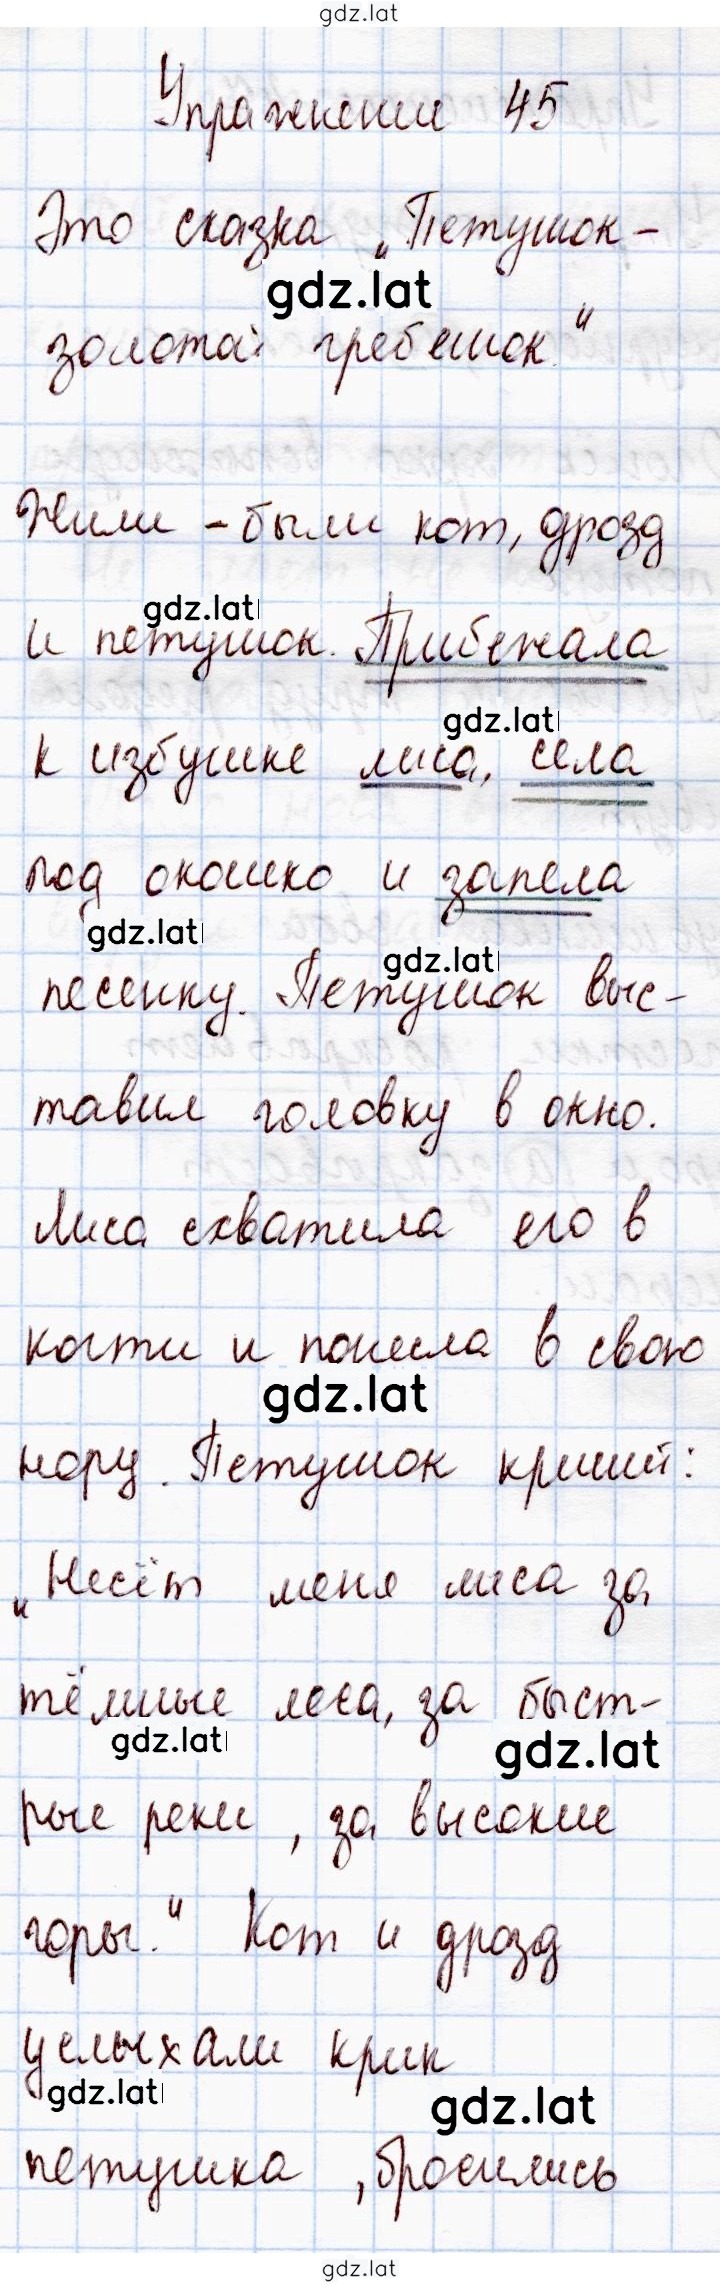 gdz.lat
Упражнение 45
Это сказка „Петушок-
gdz.lat
золотой гребешок."
Жили-были кот, дрозд
gdz.lat
и петушок. Прибежала
gdz.lat
к избушке лиса, села
под окошко и запела
gdz.lat
gdz.lat
песенку. Петушок выс-
тавил головку в окно.
Лиса схватила его в
когти и понесла в свою
gdz.lat
нору. Петушок кричит:
„Несёт меня лиса за
тёмные леса, за быст-
gdz.lat
gdz.lat
рые реки, за высокие
горы." Кот и дрозд
услыхали крик
gdz.lat
gdz.lat
петушка, бросились
gdz.lat